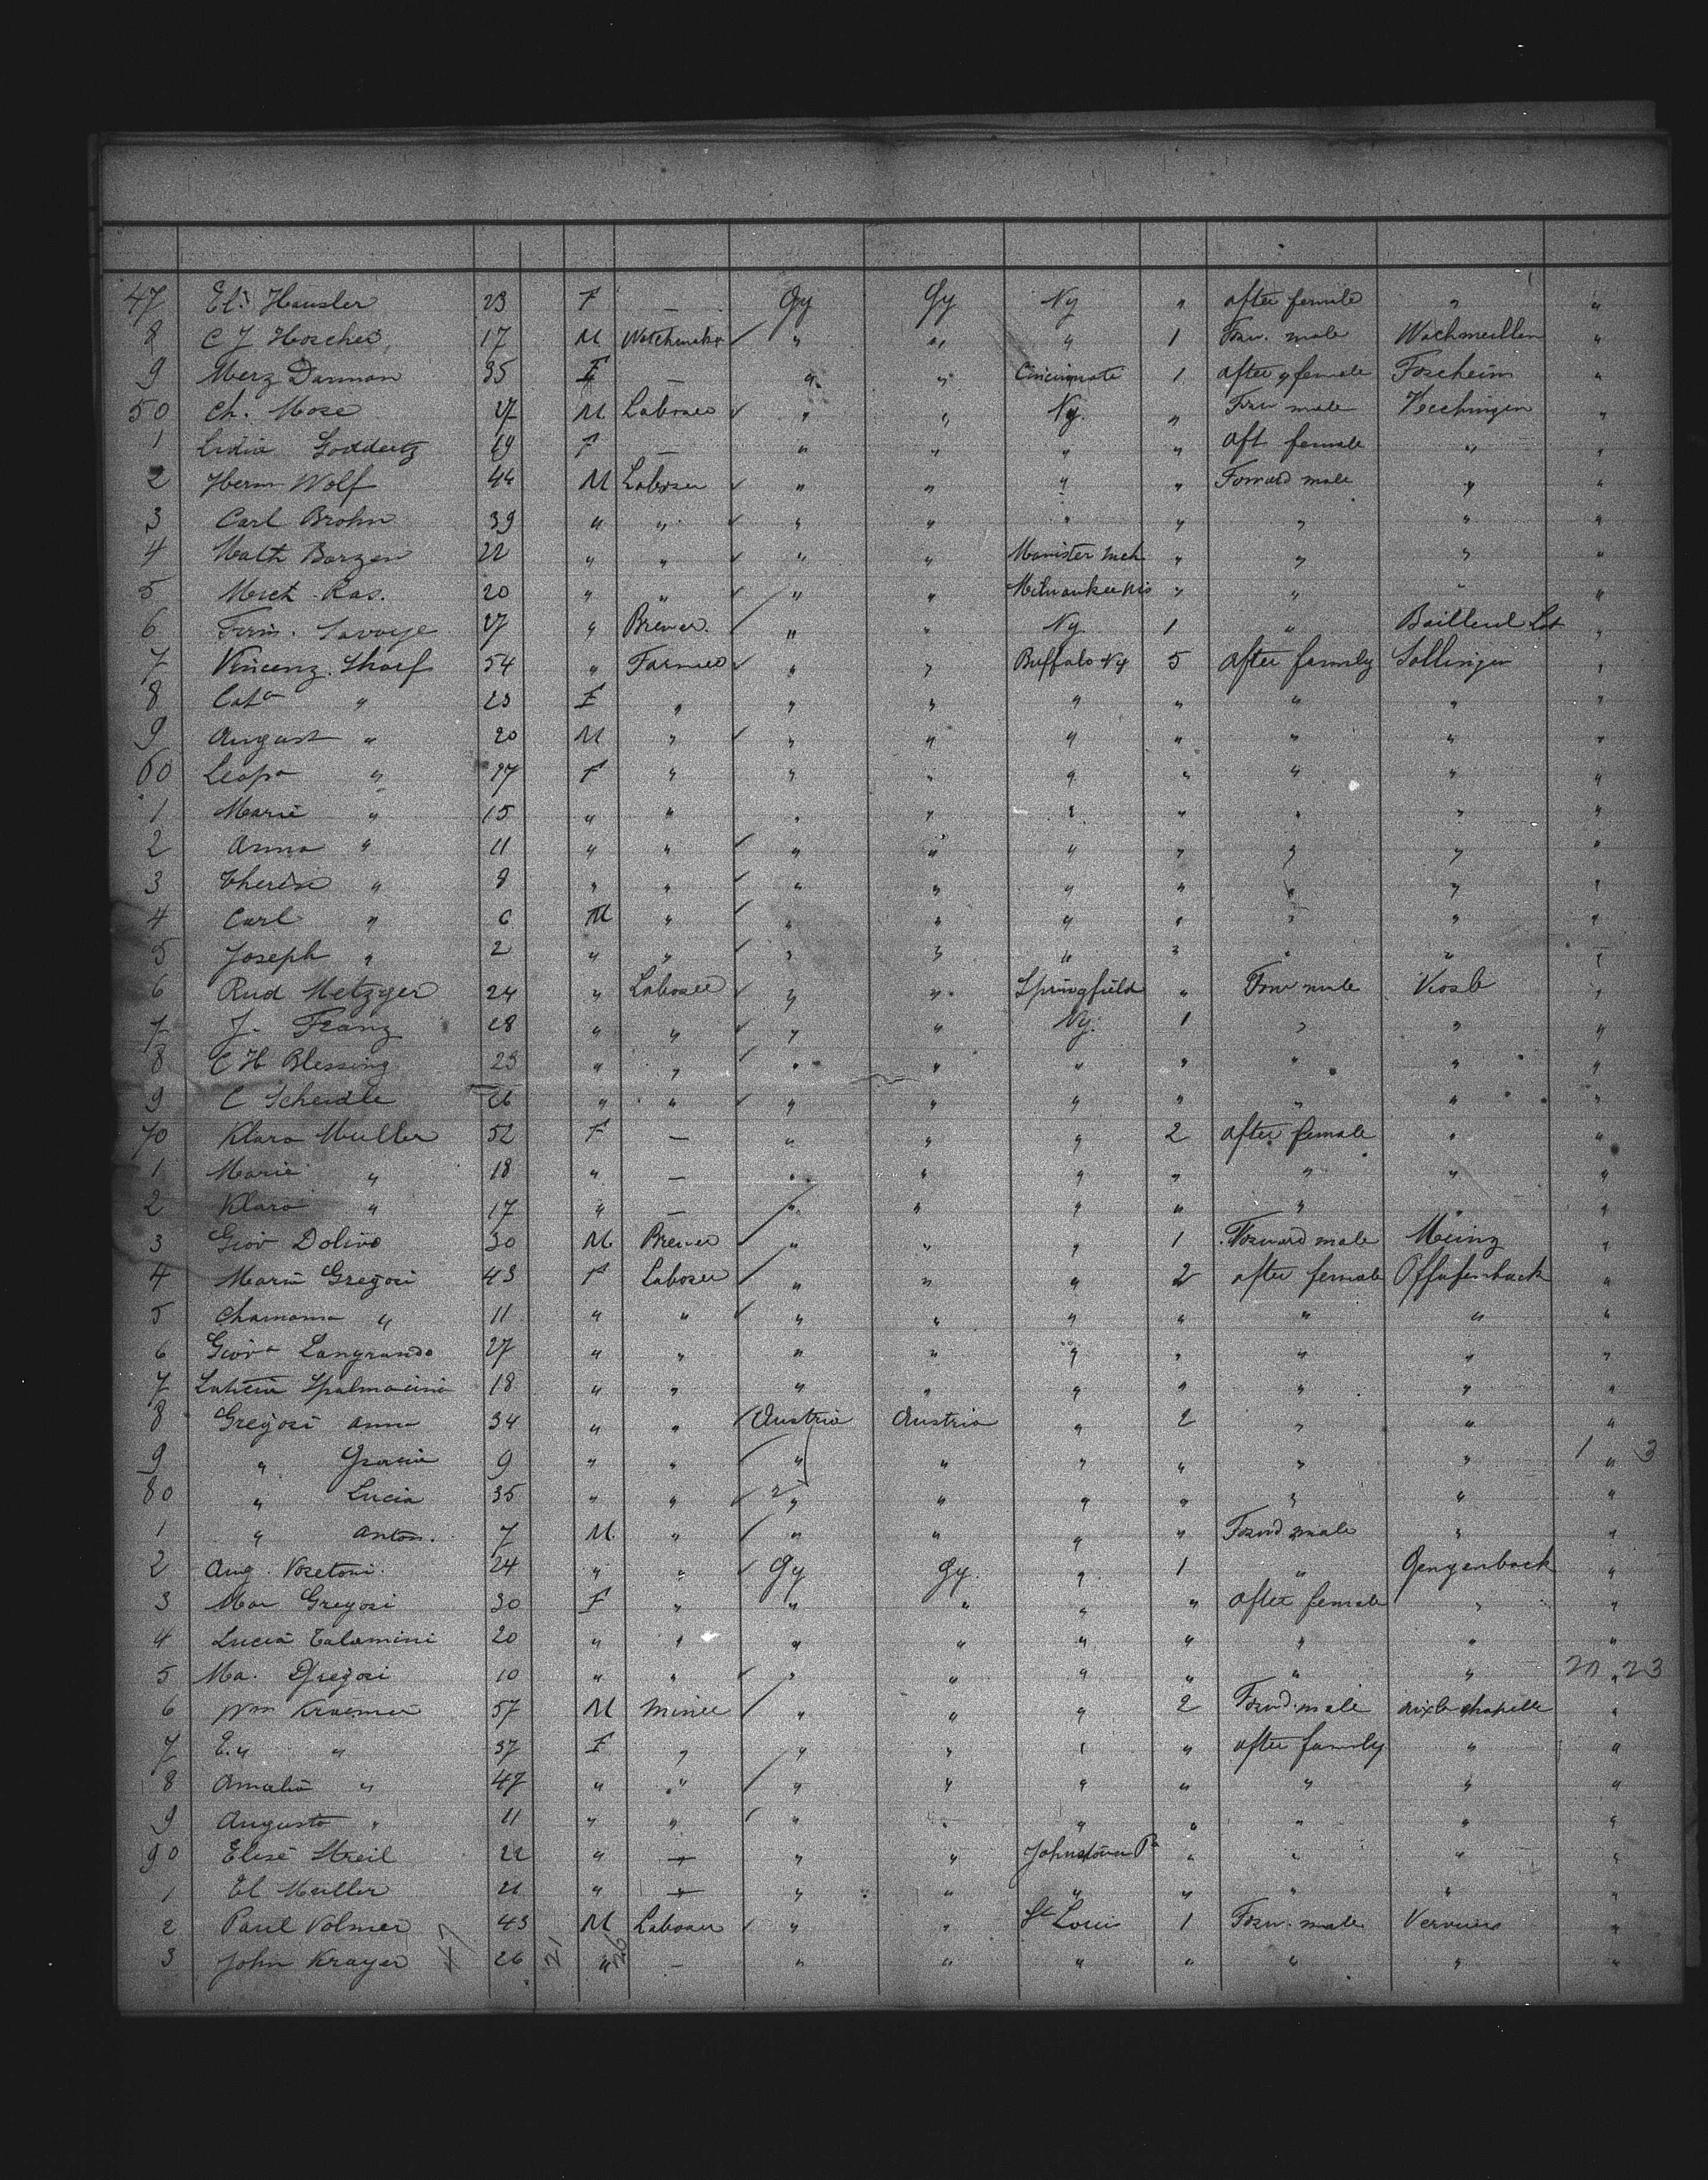 47 El. Hausler 23 F — Gy Gy Ny " after female " "
8 C J Hoscher 17 M Watchmaker " " " 1 Forw. male Wachmullen "
9 Merz Damman 35 F — " " Cincinnati 1 after female Forcheim "
50 Ch. Mose 27 M Laborer " " Ny. " Forw male Kechingen "
1 Lidia Goddertz 19 F — " " " " aft female " "
2 Herm Wolf 44 M Laborer " " " " Forward male " "
3 Carl Brohn 39 " " " " " " " " "
4 Math Borzen 22 " " " " Manister Mch " " " "
5 Mich. Ras. 20 " " " " Milwaukee Wis " " " "
6 Firm. Savoye 27 " Brewer. " " Ny 1 " Bailleul "
7 Vincenz. Sharf 54 " Farmer " " Buffalo Ny 5 after family Sollingen "
8 Cata " 23 F " " " " " " " "
9 August " 20 M " " " " " " " "
60 Leopa " 17 F " " " " " " " "
1 Marie " 15 " " " " " " " " "
2 Anna " 11 " " " " " " " " "
3 Therese " 8 " " " " " " " " "
4 Carl " 6 M " " " " " " " "
5 Joseph " 2 " " " " " " " " "
6 Rud Metzger 24 " Laborer " " Springfield " Forw male Kosb "
7 J. Franz 18 " " " " Ny. 1 " " "
8 C H Blessing 23 " " " " " " " " "
9 C Scheidle 26 " " " " " " " " "
70 Klara Muller 52 F — " " " 2 after female " "
1 Marie " 18 " — " " " " " " "
2 Klara " 17 " — " " " " " " "
3 Giov Dolivo 30 M Brewer " " " 1 Forward male Meinz "
4 Maria Gregori 43 F Laborer " " " 2 after female Offafenback "
5 Chamama " 11 " " " " " " " " "
6 Giova Langrando 27 " " " " " " " " "
7 Luticia Spalmacini 18 " " " " " " " " "
8 Gregori Anna 34 " " Austria Austria " 2 " " "
9 " Gracia 9 " " " " " " " " 1 " 3
80 " Lucia 35 " " " " " " " " "
1 " Anton. 7 M. " " " " " Forwd male " "
2 Aug. Vozetoni. 24 " " Gy Gy. " 1 " Gengenback "
3 Mar Gregori 30 F " " " " " after female " "
4 Lucia Talamini 20 " " " " " " " " "
5 Ma. Gregori 10 " " " " " " " " 20 " 23
6 Wm Kraemer 57 M Miner " " " 2 Forwd. male Aix la chapelle "
7 E. " " 37 F " " " " " after family " "
8 Amalia " 47 " " " " " " " " "
9 Augusta " 11 " " " " " " " " "
90 Elise Streil 22 " — " " Johnstown Pa " " " "
1 El Muller 21 " — " " " " " " "
2 Paul Volmer 43 M Laborer " " St Louis 1 Forw. male Verviers "
3 John Krayer 47 26 21 " 26 — " " " " " " "